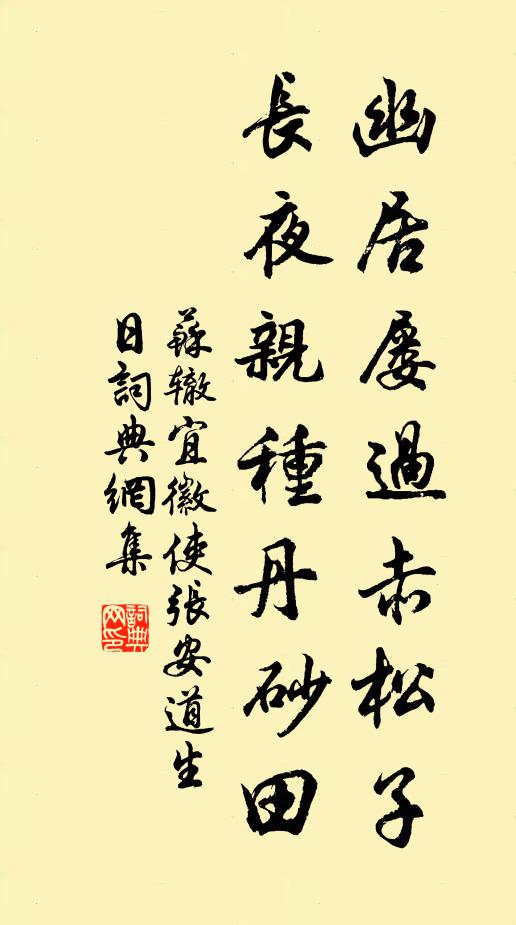 幽居屡過赤松子
長夜親種丹砂田
蘇辙宜徽使張安道生
日詞典網集
詞典网印